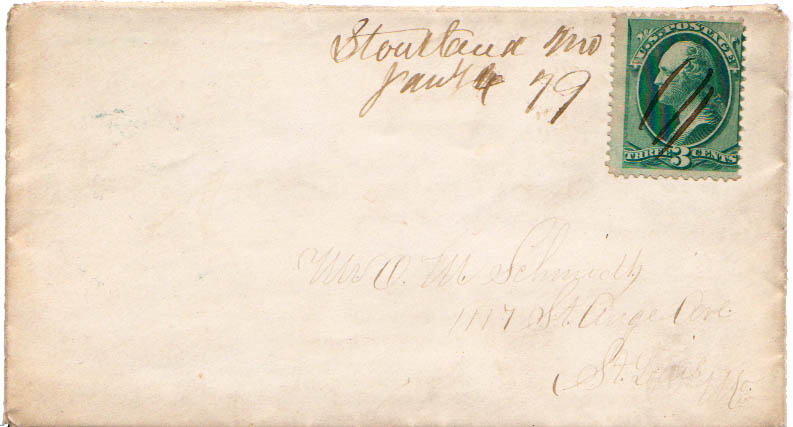 Stoutland Mo
Jany 4 79
U.S. POSTAGE
THREE 3 CENTS
Mr O. M. Schmidt
1117 St. Ange Ave
St. Louis Mo.